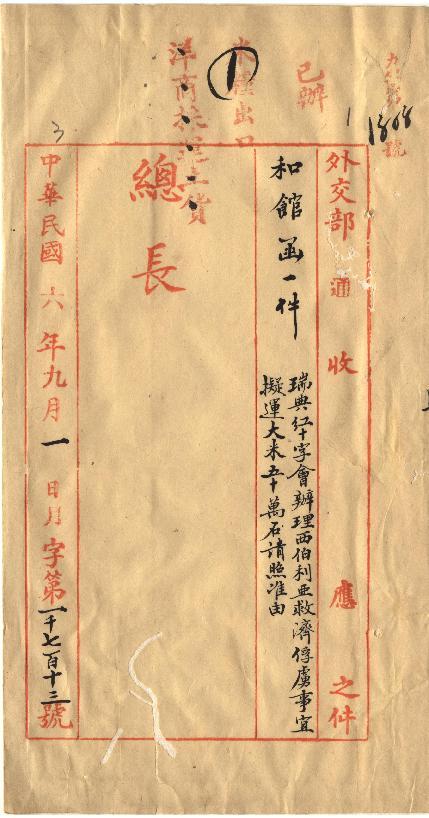 1808
號
已辦
米糧出口
洋商
土貨
1
3
外交部通收應之件
和館函一件
瑞典紅十字會辦理西伯利亚救濟俘虜事宜
擬運大米五十萬石請照准由
總長
中華民國六年九月一日月字第一千七百十三號